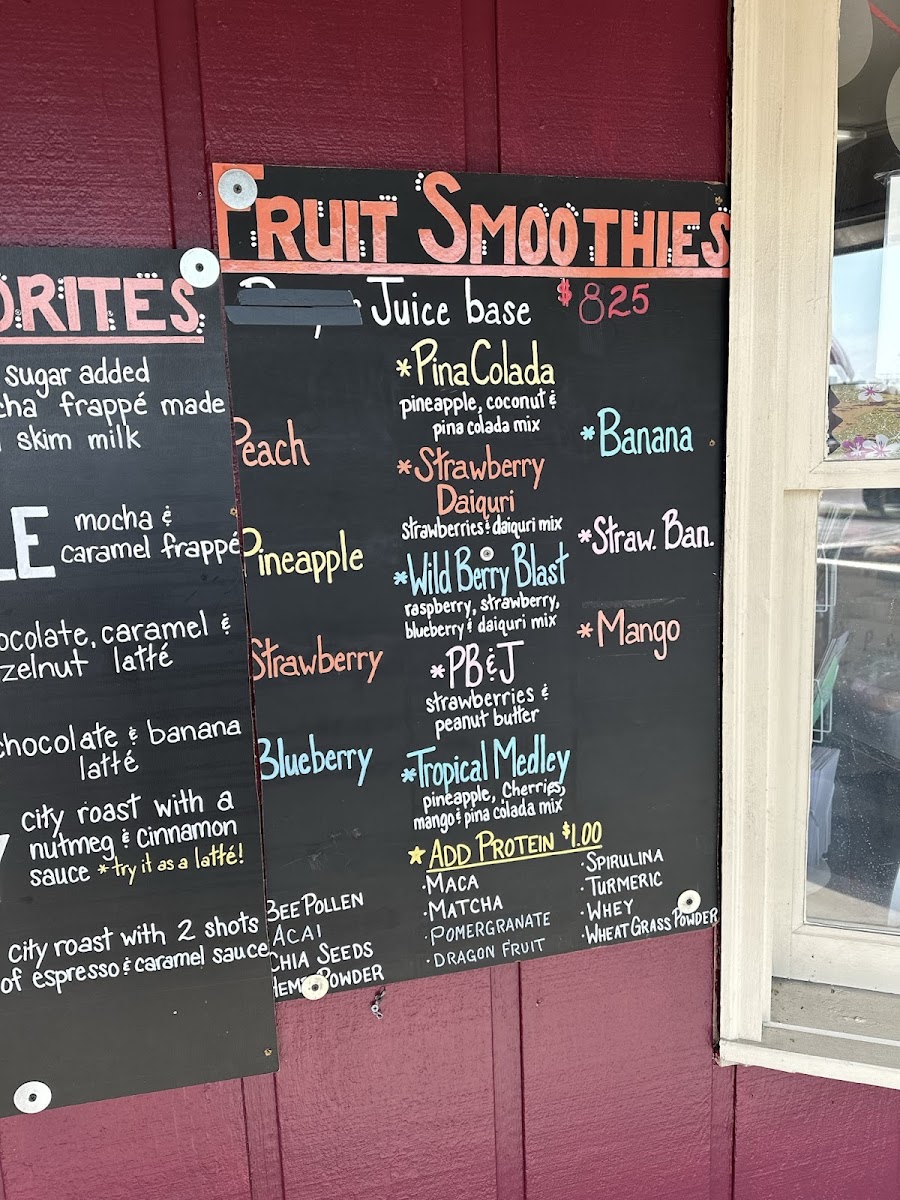 ORITES
sugar added
cha frappé made
skim milk
LE mocha &
caramel frappé
ocolate, caramel &
zelnut latté
chocolate & banana
latté
city roast with a
nutmeg & cinnamon
sauce *try it as a latté!
city roast with 2 shots
of espresso & caramel sauce
FRUIT SMOOTHIES
Juice base $825
Peach
Pineapple
Strawberry
Blueberry
*Pina Colada
pineapple, coconut &
pina colada mix
*Strawberry
Daiquri
strawberries & daiquri mix
*Wild Berry Blast
raspberry, strawberry,
blueberry & daiquri mix
*PB&J
strawberries &
peanut butter
*Tropical Medley
pineapple, Cherries,
mango & pina colada mix
*Banana
*Straw. Ban.
*Mango
★ADD PROTEIN $1.00
BEE POLLEN
ACAI
CHIA SEEDS
HEMP POWDER
·MACA
·MATCHA
·POMERGRANATE
·DRAGON FRUIT
·SPIRULINA
·TURMERIC
·WHEY
·WHEAT GRASS POWDER